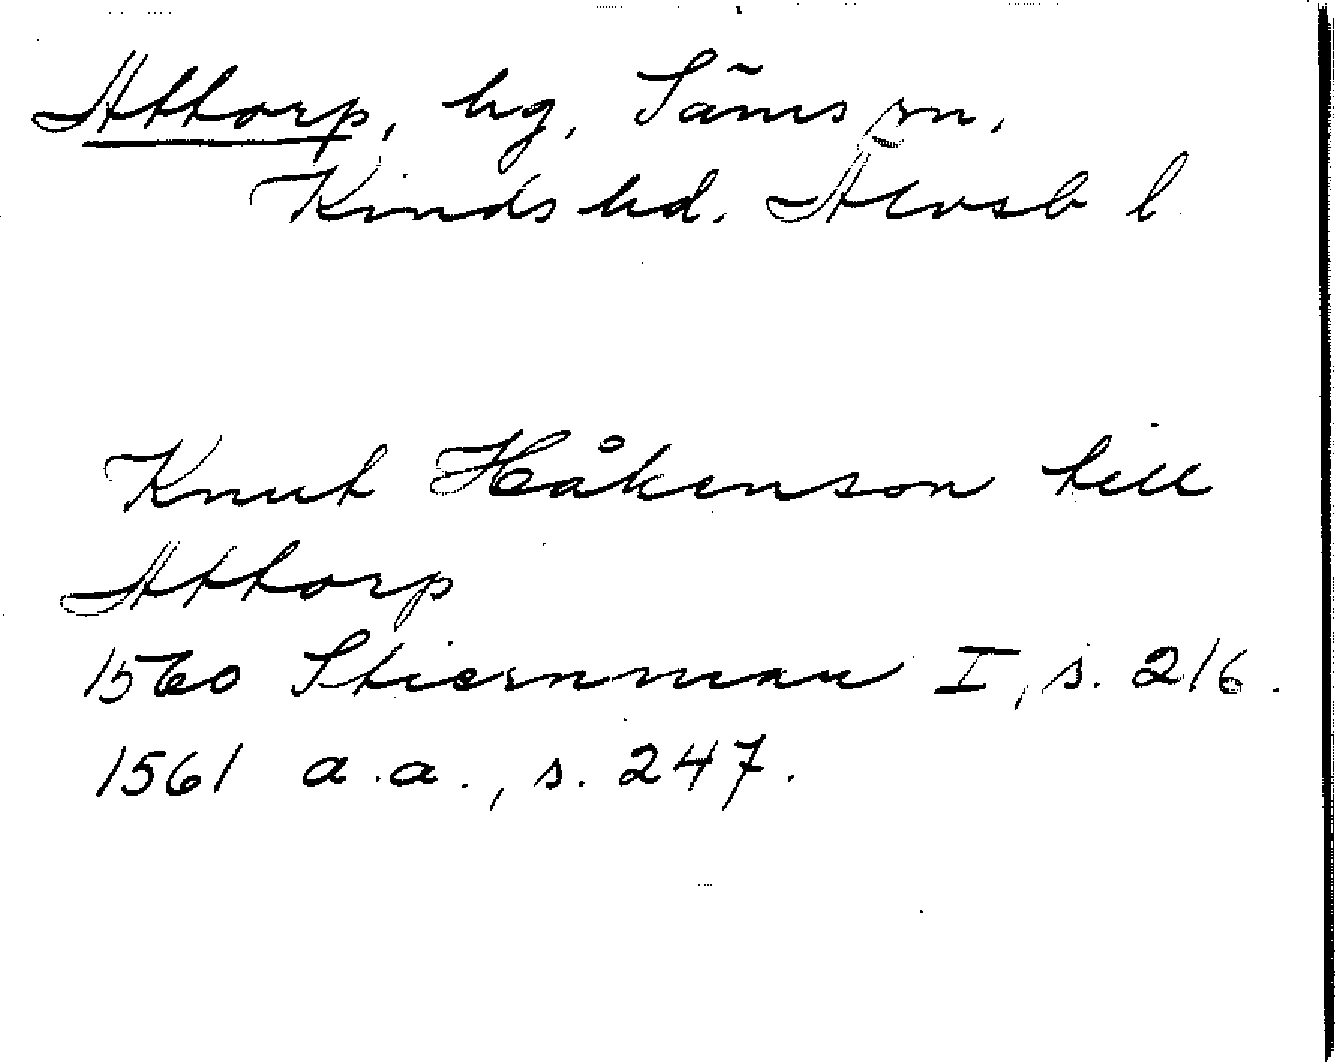 Attorp, hg, Säms sn,
Kinds hd. Älvsb l
Knut Håkenson till
Attorp
1560 Stiernman I, s. 216.
1561 a.a., s. 247.